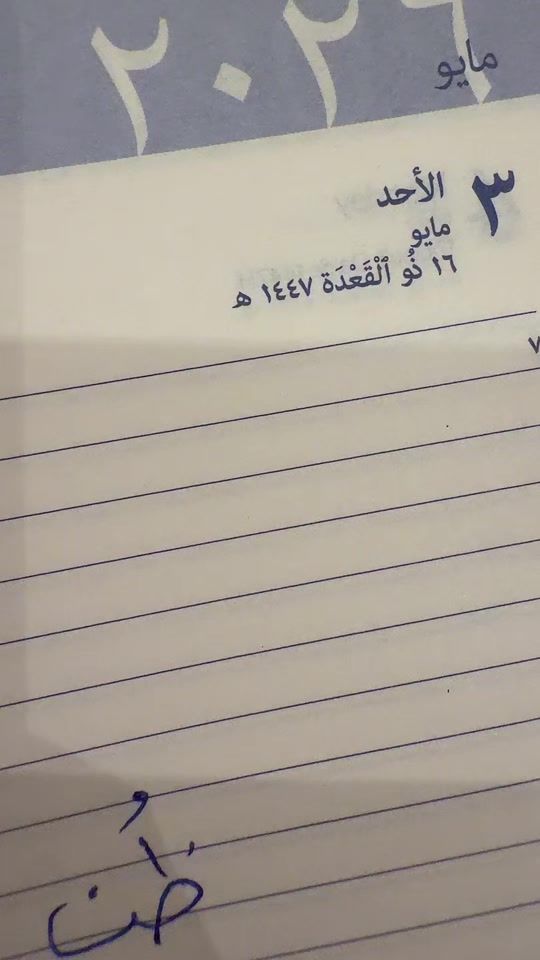 ٢٠٢٦
مايو
٣
الأحد
مايو
١٦ ذُو ٱلْقَعْدَة ١٤٤٧ هـ
٧
ظُن